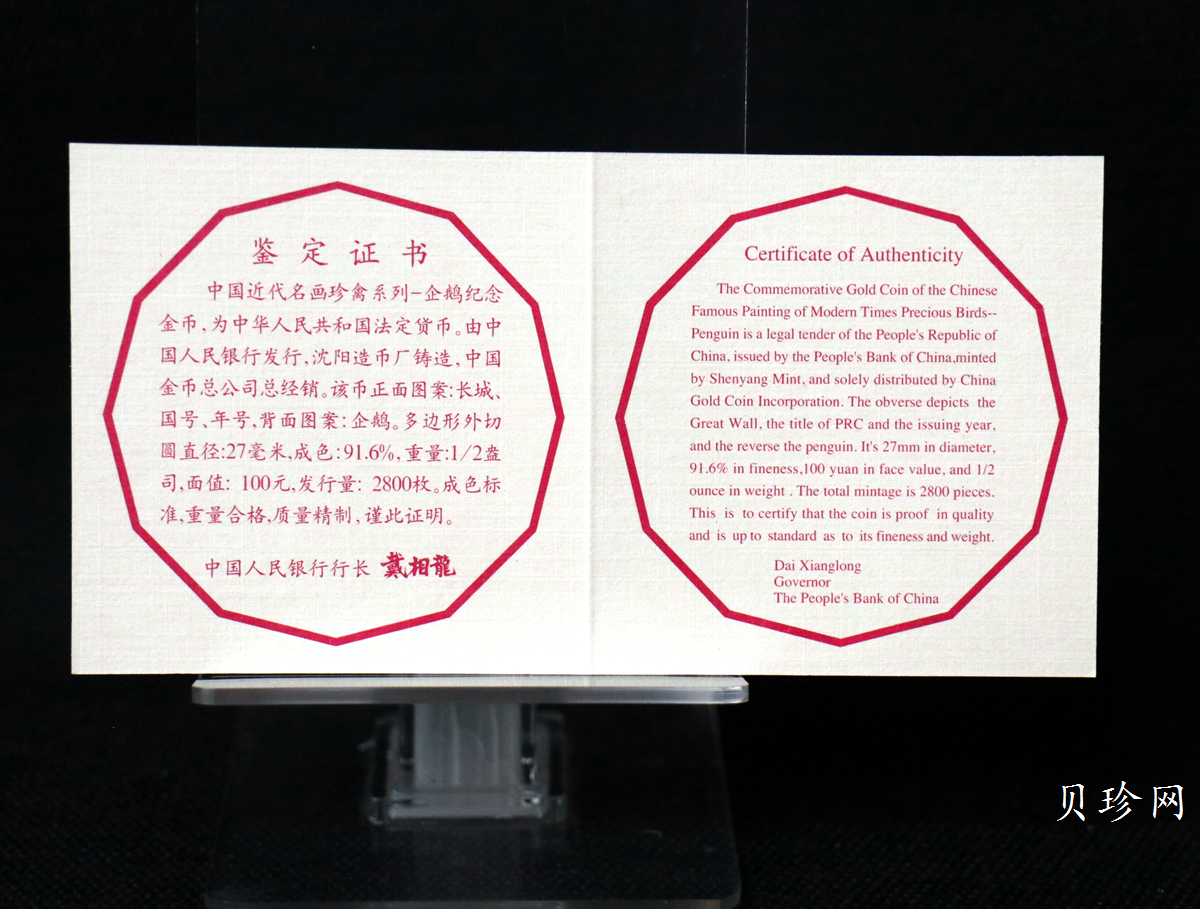 鉴定证书
中国近代名画珍禽系列-企鹅纪念
金币,为中华人民共和国法定货币。由中
国人民银行发行,沈阳造币厂铸造,中国
金币总公司总经销。该币正面图案:长城、
国号、年号,背面图案:企鹅。多边形外切
圆直径:27毫米,成色:91.6%,重量:1/2盎
司,面值: 100元,发行量: 2800枚。成色标
准,重量合格,质量精制,谨此证明。
中国人民银行行长 戴相龍
Certificate of Authenticity
The Commemorative Gold Coin of the Chinese
Famous Painting of Modern Times Precious Birds--
Penguin is a legal tender of the People's Republic of
China, issued by the People's Bank of China,minted
by Shenyang Mint, and solely distributed by China
Gold Coin Incorporation. The obverse depicts the
Great Wall, the title of PRC and the issuing year,
and the reverse the penguin. It's 27mm in diameter,
91.6% in fineness,100 yuan in face value, and 1/2
ounce in weight . The total mintage is 2800 pieces.
This is to certify that the coin is proof in quality
and is up to standard as to its fineness and weight.
Dai Xianglong
Governor
The People's Bank of China
贝珍网